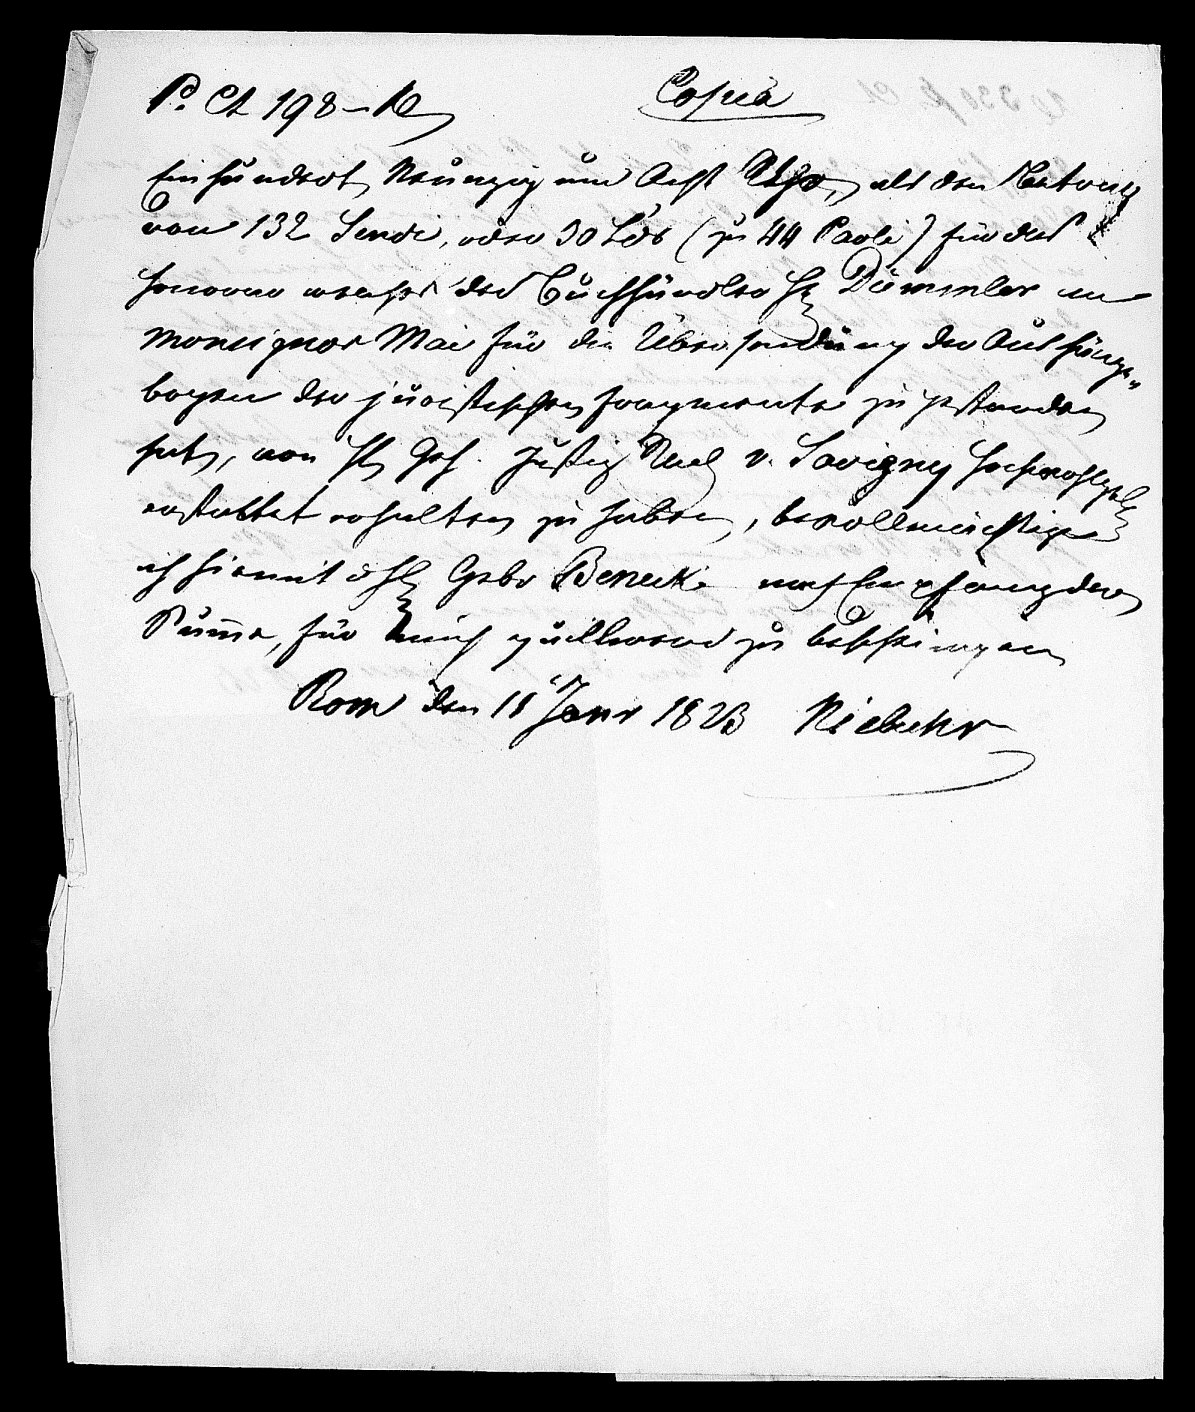 Pr Ct 198 – Copia
Ein hundert, Neunzig und Acht Rthr, als den Betrag
von 132 Scudi, oder 30 Ld'or (zu 44 Paoli) für das
honorar welches der Buchhändler H Dümmler an
Monsignor Mai für die Übersendung der Aushänge-
bogen der juristischen fragmente zu gestanden
hat, von H Geh. Justiz Rath v. Savigny Hochwohlgeb
erstattet erhalten zu haben, bevollmächtige
ich hiermit d H Gebr Benecke nach Empfang der
Summe, für mich quittirend zu bescheinigen
Rom den 11 Janr 1823 Niebuhr